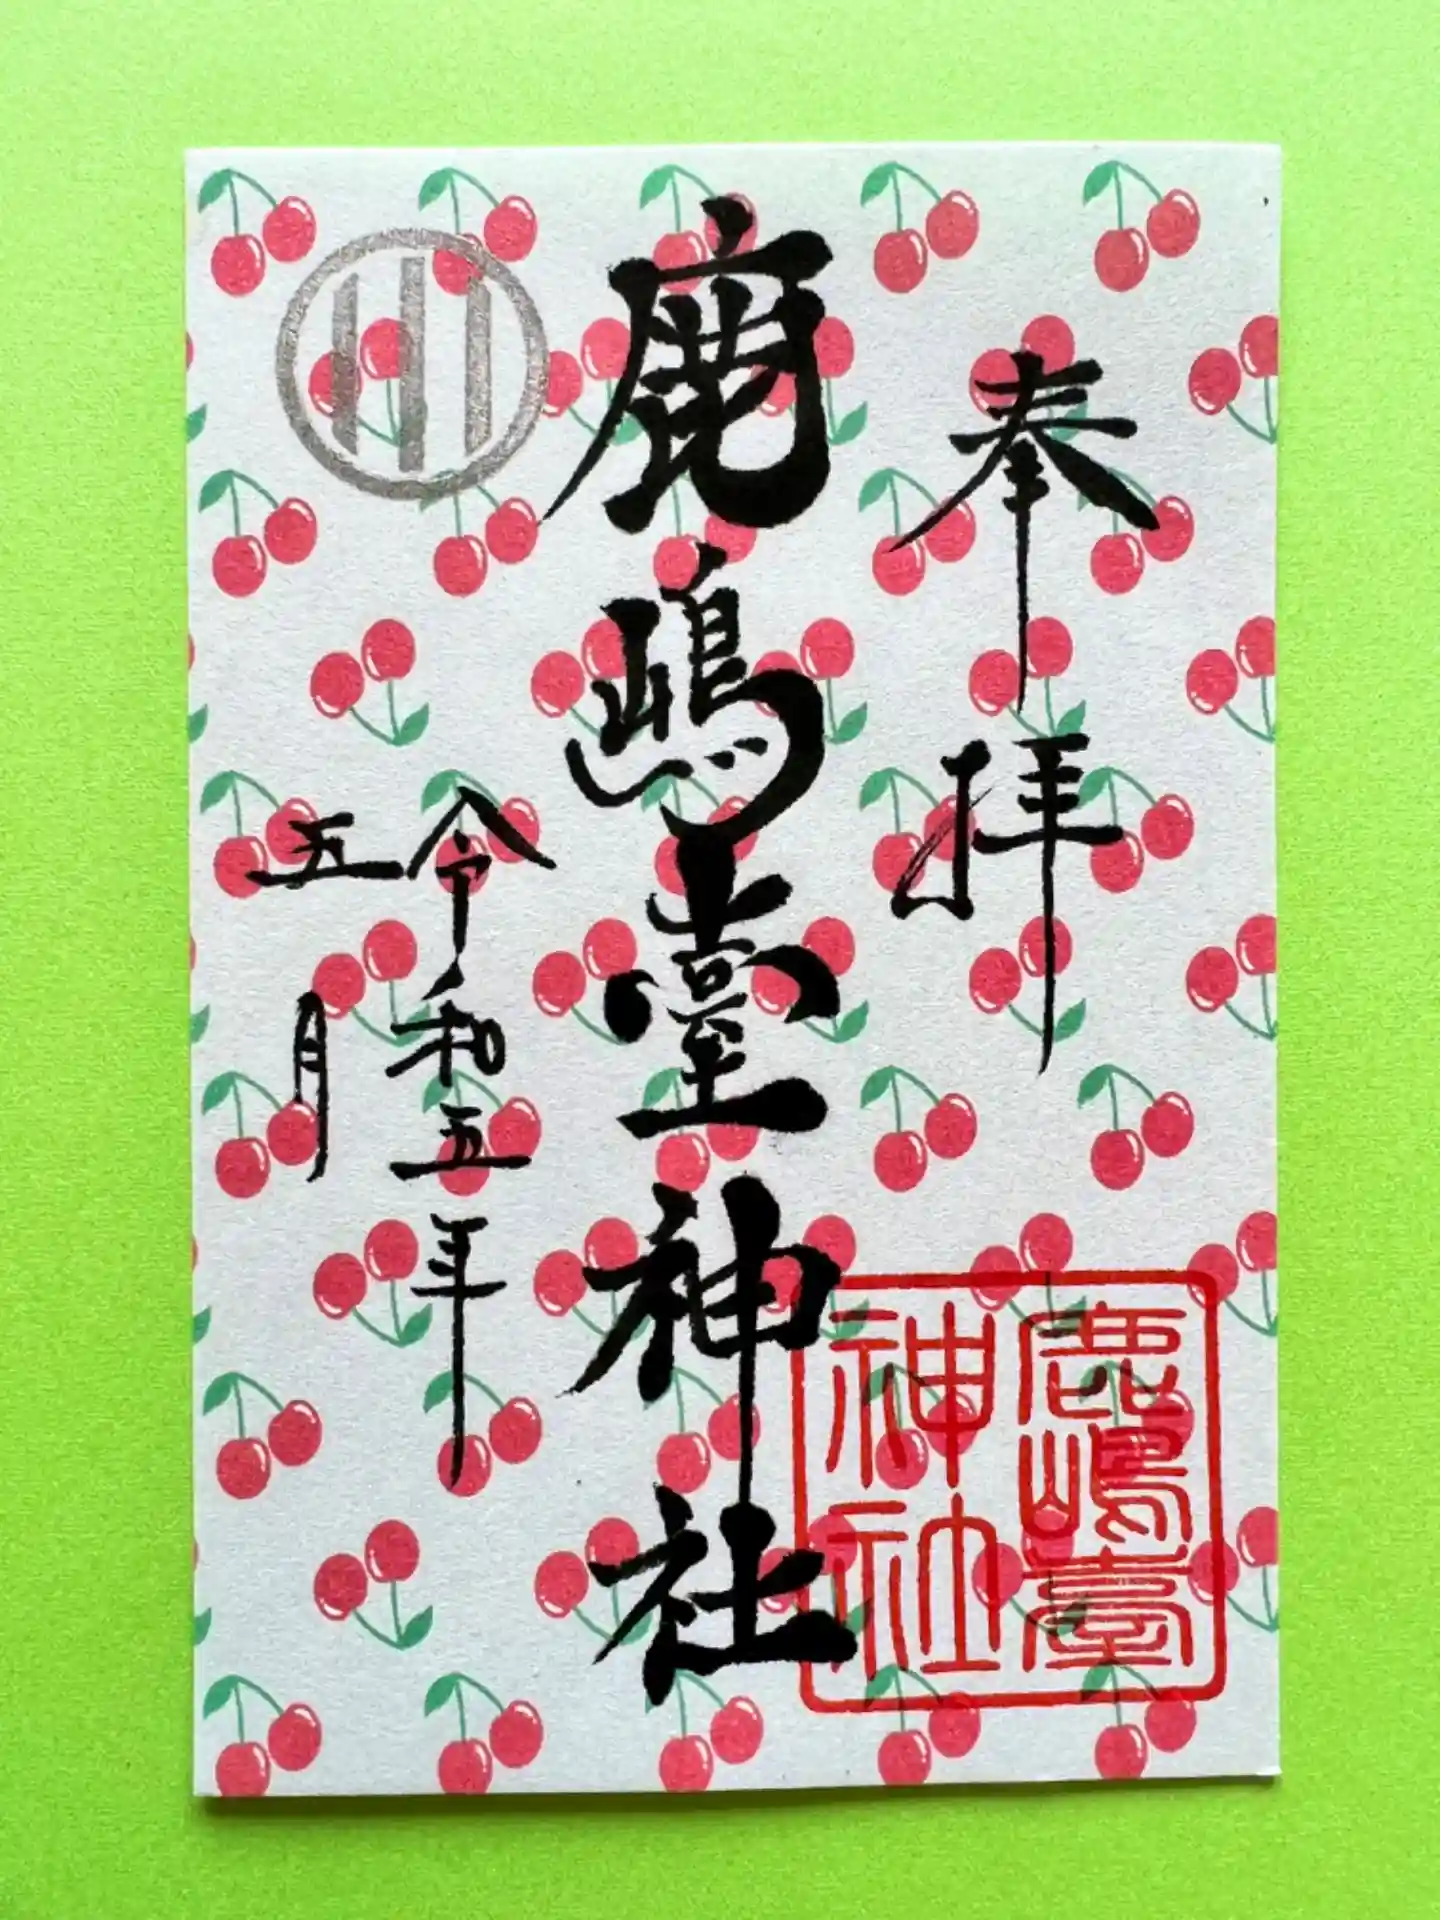 奉拝
鹿嶋臺神社
令和五年
五月
鹿嶋臺
神社